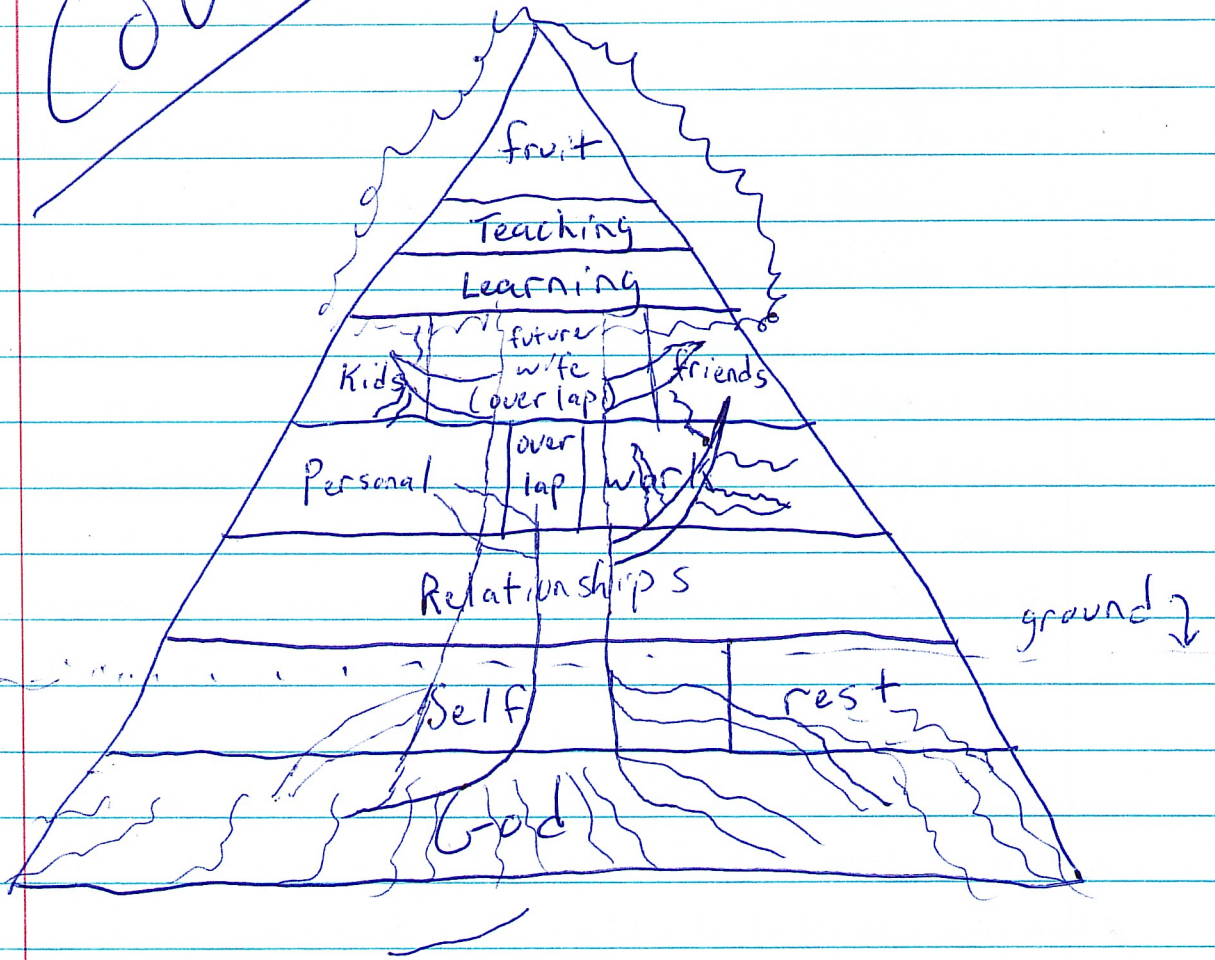 fruit
Teaching
Learning
Kids
future
wife
(overlap)
friends
Personal
over
lap
work
Relationships
ground
Self
rest
God